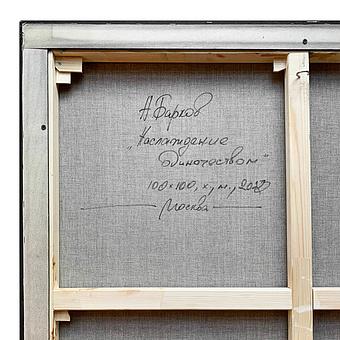 А Барков
„Наслаждение
одиночеством"
100×100, х, м.,
Москва